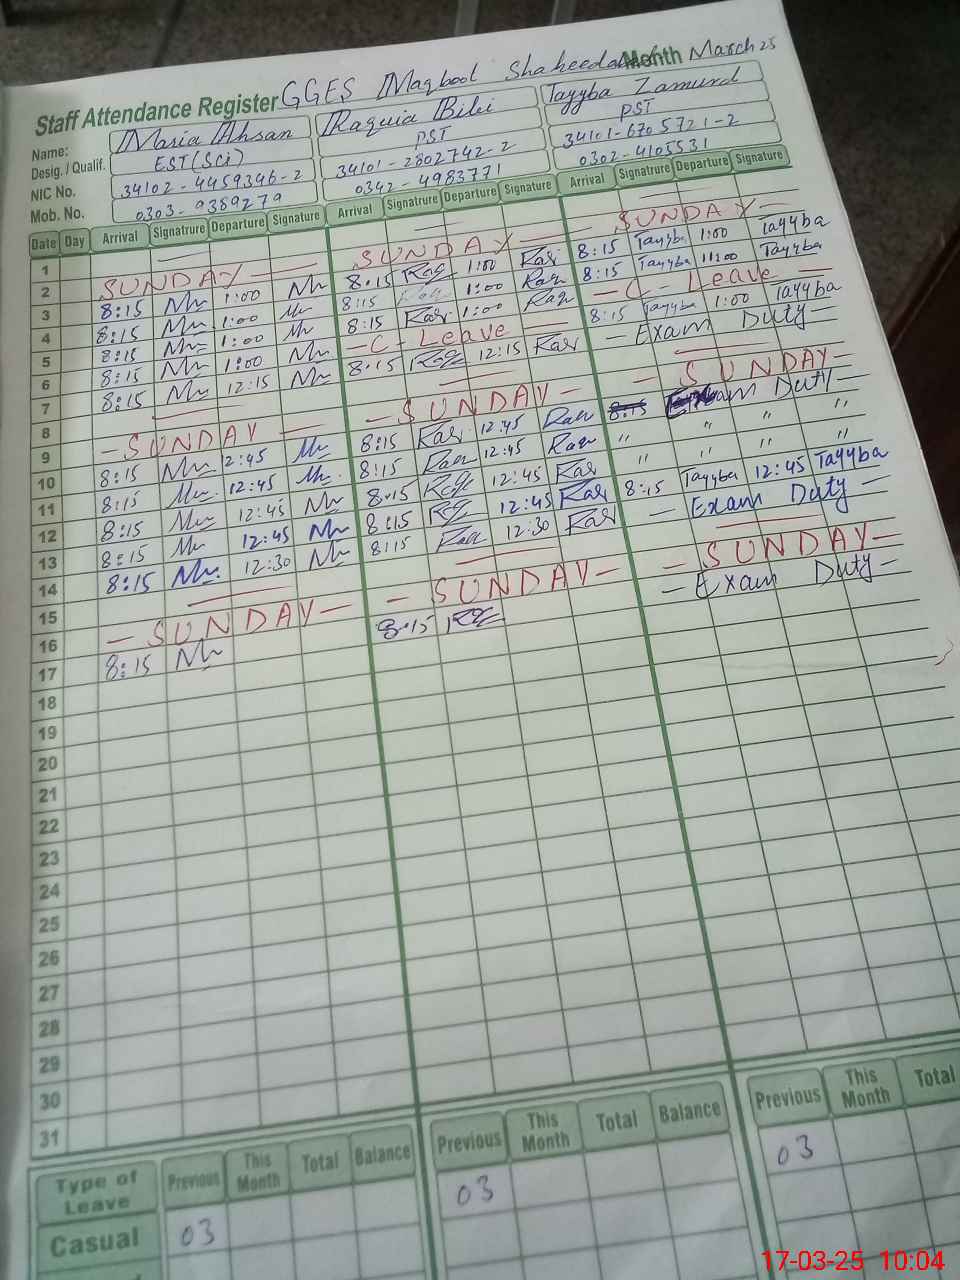 Staff Attendance Register GGES Maqbool Shaheedabad Month March 25
Name: Maria Ahsan Raquia Bibi Tayyba Zamurd
Desig. / Qualif. EST (Sci) PST PST
NIC No. 34102-4459346-2 34101-2802742-2 34101-6705721-2
Mob. No. 0303-9389279 0342-4983771 0302-4105531
Date Day Arrival Signatrure Departure Signature Arrival Signatrure Departure Signature Arrival Signatrure Departure Signature
1
2 SUNDAY SUNDAY SUNDAY
3 8:15 1:00 8:15 1:00 8:15 Tayyba 1:00 Tayyba
4 8:15 1:00 8:15 1:00 8:15 Tayyba Tayyba
5 8:15 1:00 8:15 1:00 - C - Leave -
6 8:15 1:00 - C - Leave - 8:15 Tayyba 1:00 Tayyba
7 8:15 12:15 8:15 12:15 - Exam Duty -
8
9 - SUNDAY - - SUNDAY - - SUNDAY -
10 8:15 2:45 8:15 12:45 8:15 Exam Duty -
11 8:15 12:45 8:15 12:45 " " " "
12 8:15 12:45 8:15 12:45 " " " "
13 8:15 12:45 8:15 12:45 8:15 Tayyba 12:45 Tayyba
14 8:15 12:30 8:15 12:30 - Exam Duty -
15
16 - SUNDAY - - SUNDAY - - SUNDAY -
17 8:15 8:15 - Exam Duty -
18
19
20
21
22
23
24
25
26
27
28
29
30
31
Type of Leave Previous This Month Total Balance Previous This Month Total Balance Previous This Month Total
Casual 03 03 03
17-03-25 10:04